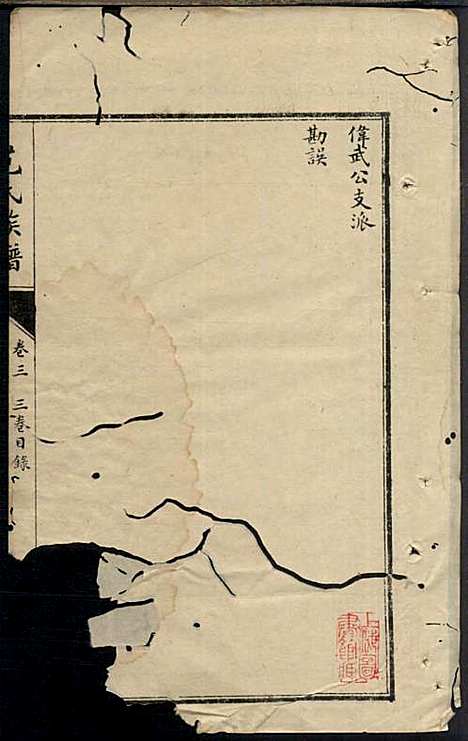 偉武公支派
勘誤
氏族譜
卷三 三卷目錄